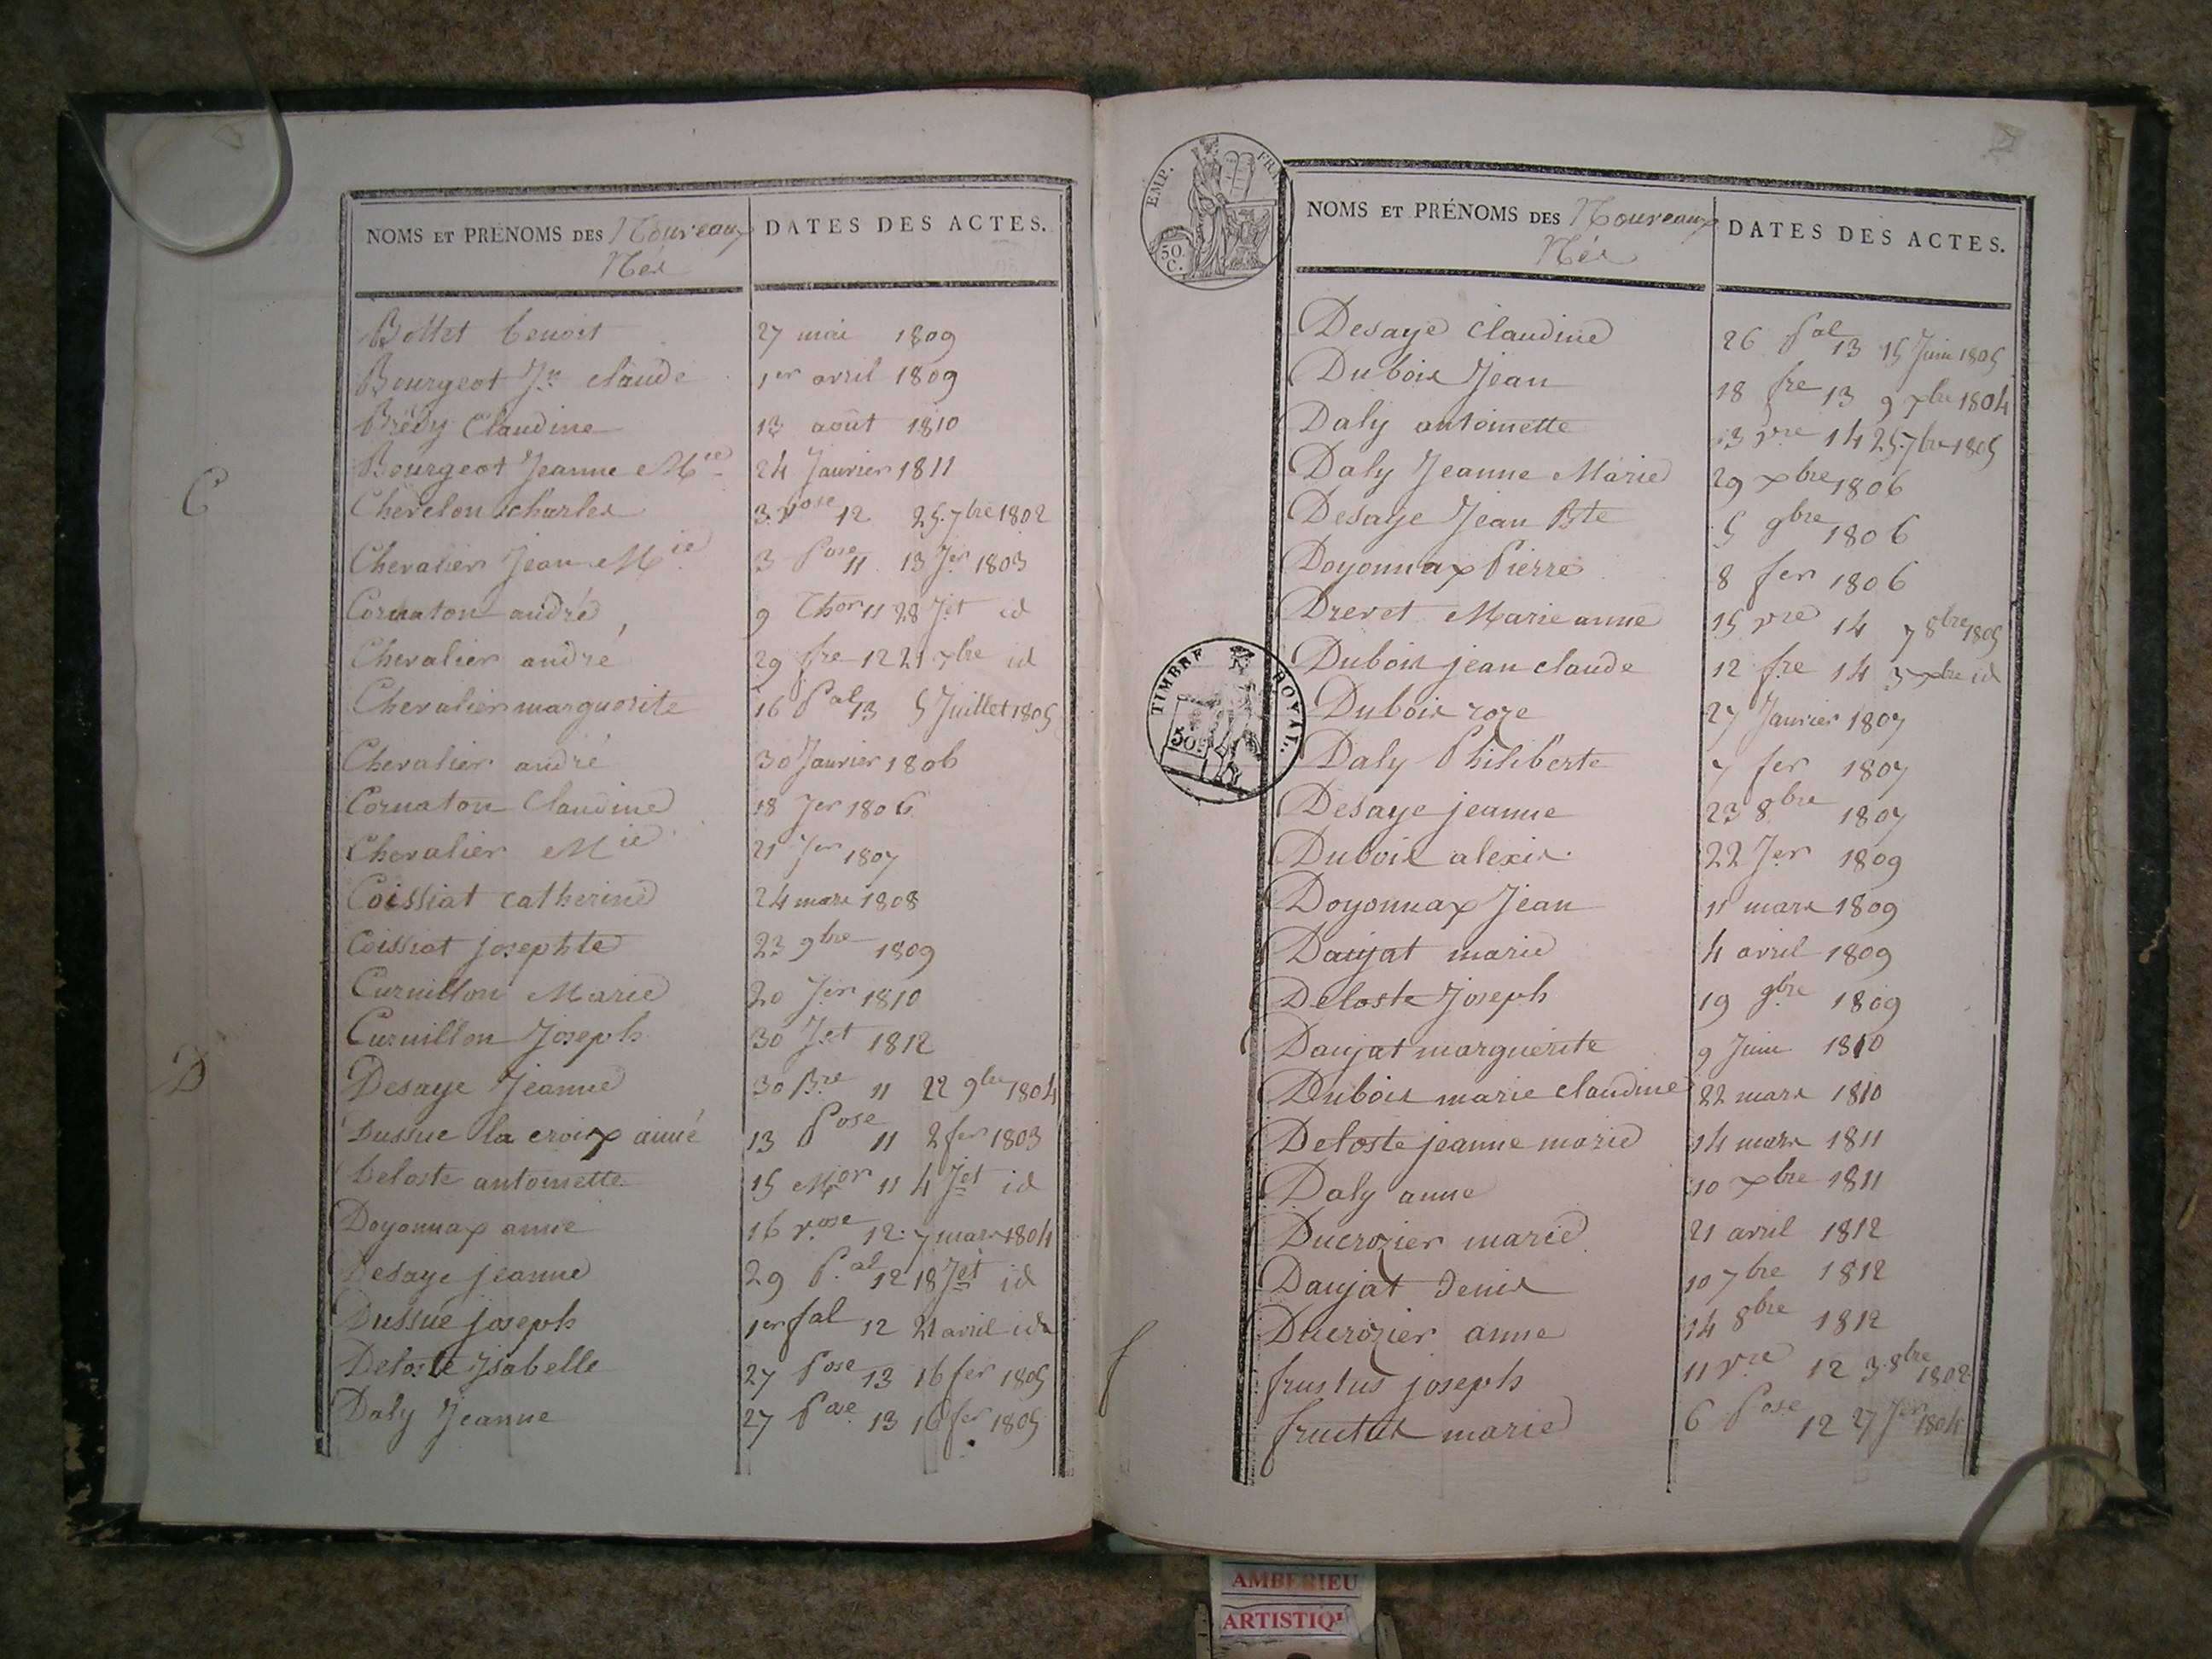 NOMS ET PRÉNOMS DES Nouveaux
Nés
DATES DES ACTES.
Bottet benoit 27 mai 1809
Bourgeot Jn claude 1er avril 1809
Brédy Claudine 13 août 1810
Bourgeot Jeanne Mie 24 Janvier 1811
C
Chevelon charles 3 vose 12 25 7bre 1802
Chevalier Jean Mie 3 Pose 11 13 Jer 1803
Cornaton andré 9 Thor 11 28 Jet id
Chevalier andré 29 fre 12 21 xbre id
Chevalier marguerite 16 Pal 13 5 Juillet 1805
Chevalier andré 30 Janvier 1806
Cornaton Claudine 18 Jer 1806
Chevalier Mie 21 Jer 1807
Coissiat catherine 24 mars 1808
Coissiat josephte 23 9bre 1809
Curnillon Marie 20 Jer 1810
Curnillon Joseph 30 Jet 1812
D
Desaye Jeanne 30 Bre 11 22 9bre 1804
Dussue la croix aimé 13 Pose 11 2 fer 1803
Deloste antoinette 15 Mor 11 4 Jet id
Doyonnax anne 16 vose 12 7 mars 1804
Desaye jeanne 29 P.al 12 18 Jet id
Dussue joseph 1er fal 12 21 avril id
Deloste Isabelle 27 Pose 13 16 fer 1805
Daly Jeanne 27 Pose 13 16 fer 1805
EMP. FR
50
C.
NOMS ET PRÉNOMS DES Nouveaux
Nés
DATES DES ACTES.
Desaye claudine 26 Pal 13 15 Juin 1805
Dubois Jean 18 fre 13 9 xbre 1804
Daly antoinette 3 vre 14 25 7bre 1805
Daly Jeanne Marie 29 xbre 1806
Desaye Jean Bte 5 9bre 1806
Doyonnax Pierre 8 fer 1806
Drevet Marie anne 15 vre 14 7 8bre 1805
Dubois jean claude 12 fre 14 3 xbre id
TIMBRE ROYAL.
50c
Dubois roze 27 Janvier 1807
Daly Philiberte 7 fer 1807
Desaye jeanne 23 8bre 1807
Dubois alexis 22 Jer 1809
Doyonnax Jean 11 mars 1809
Daujat marie 4 avril 1809
Deloste Joseph 19 9bre 1809
Daujat marguerite 9 Juin 1810
Dubois marie claudine 22 mars 1810
Deloste jeanne marie 14 mars 1811
Daly anne 10 xbre 1811
Ducrozier marie 21 avril 1812
Daujat Denis 10 7bre 1812
Ducrozier anne 14 8bre 1812
f
frustus joseph 11 vre 12 3 8bre 1802
fructus marie 6 Pose 12 27 Jer 1804
AMBERIEU
ARTISTIQ